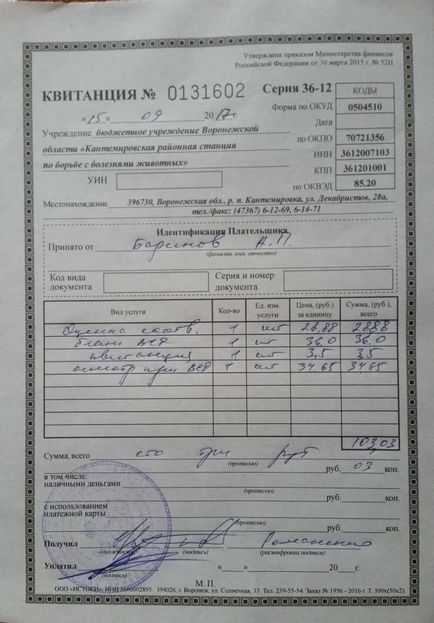 Утверждена приказом Министерства финансов
Российской Федерации от 30 марта 2015 г. № 52Н
КВИТАНЦИЯ № 0131602 Серия 36-12 КОДЫ
Форма по ОКУД 0504510
«15» 09 2017г. Дата
Учреждение бюджетное учреждение Воронежской по ОКПО 70721356
области «Кантемировская районная станция ИНН 3612007103
по борьбе с болезнями животных» КПП 361201001
УИН по ОКВЭД 85.20
Местонахождение 396730, Воронежская обл., р. п. Кантемировка, ул. Декабристов, 28а,
тел./факс: (47367) 6-12-69, 6-14-71
Идентификация Плательщика
Принято от Баринов А.П.
(фамилия, имя, отчество)
Код вида документа
Серия и номер документа
Вид услуги Кол-во Ед. изм. услуги Цена, (руб.) за единицу Сумма, (руб.), всего
Оценка соотв. 1 шт 28,88 28,88
бланк ВСД 1 шт 36,0 36,0
квитанция 1 шт 3,5 3,5
осмотр при ВСД 1 шт 34,65 34,65
103,03
Сумма, всего сто три руб
(прописью) руб. 03 коп.
в том числе:
наличными деньгами
(прописью) руб. коп.
с использованием
платежной карты
(прописью) руб. коп.
Получил
(должность) (подпись) (расшифровка подписи)
Уплатил « » 20 г.
(подпись)
М. П.
ООО «ИСТОКИ», ИНН 3666002895 394026, г. Воронеж, ул. Солнечная, 33. Тел. 239-55-54 Заказ № 1956 - 2016 г. Т. 300х(50х2)